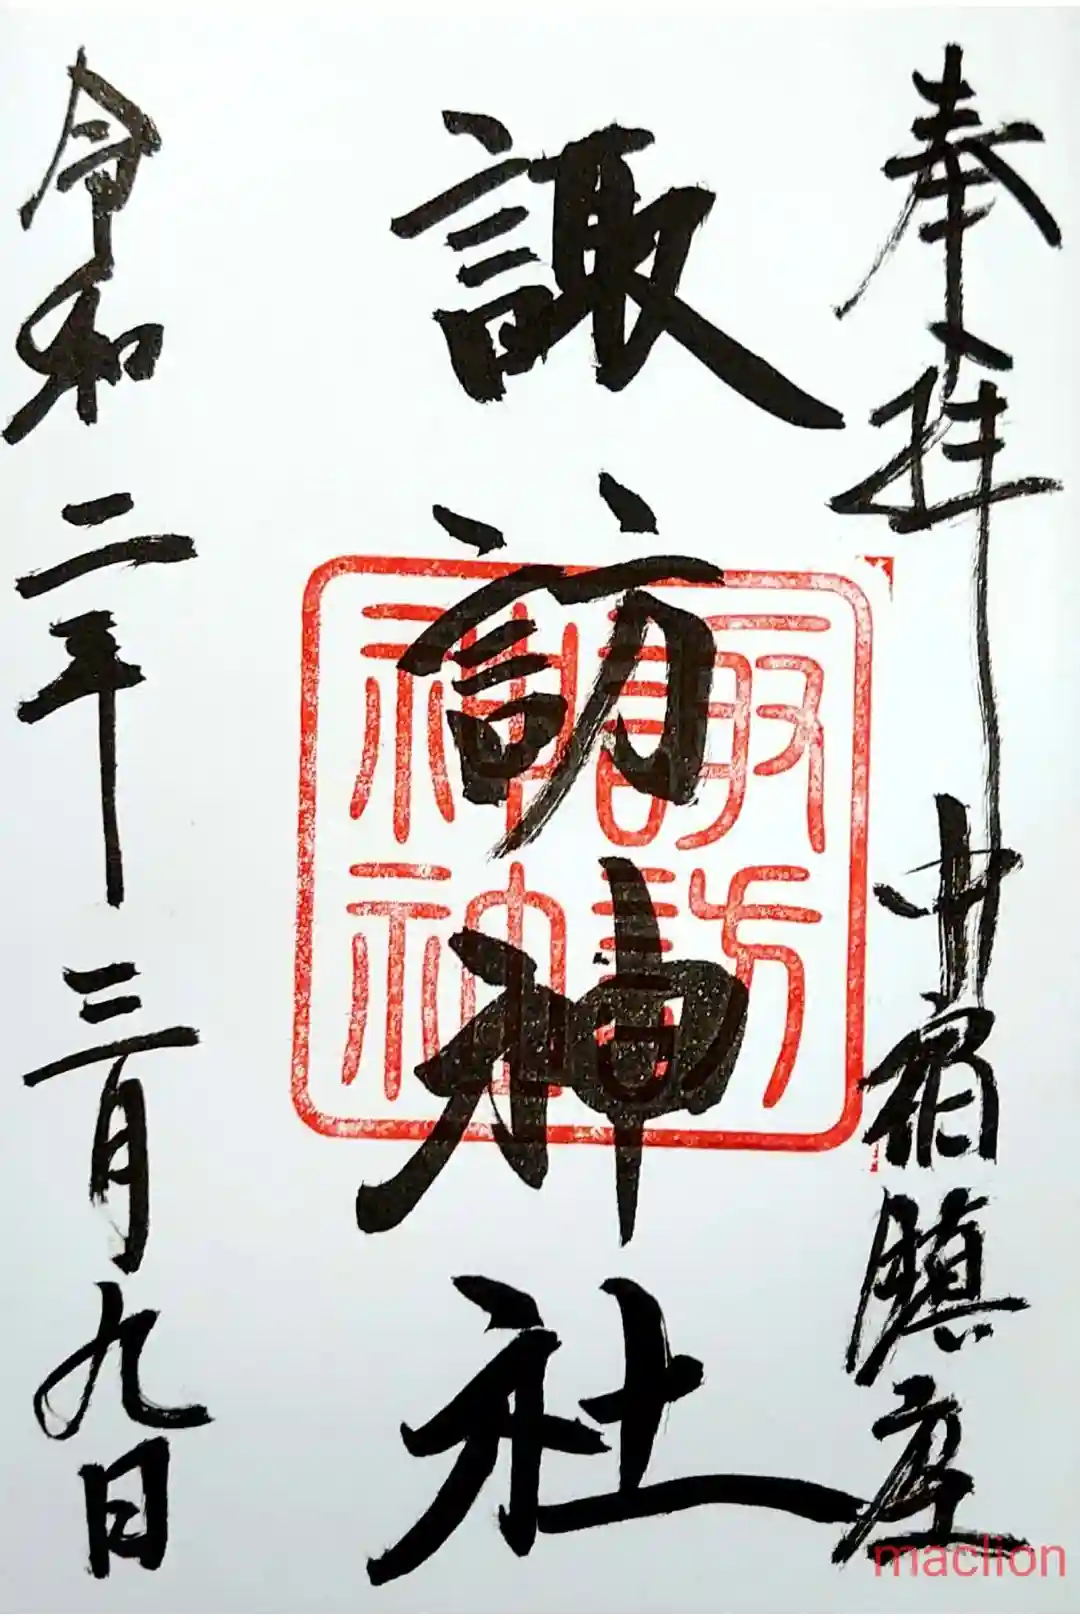 奉拝 中宿鎮座
諏訪神社
令和二年三月九日
諏訪
神社
maclion